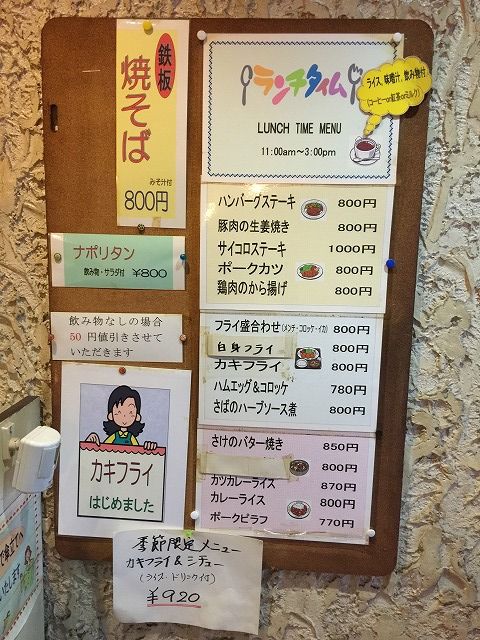 鉄板
焼そば
みそ汁付
800円
ナポリタン
飲み物・サラダ付 ¥800
飲み物なしの場合
50円値引きさせて
いただきます
カキフライ
はじめました
ランチタイム
LUNCH TIME MENU
11:00am～3:00pm
ライス、味噌汁、飲み物付
(コーヒーor紅茶orミルク)
ハンバーグステーキ 800円
豚肉の生姜焼き 800円
サイコロステーキ 1000円
ポークカツ 800円
鶏肉のから揚げ 800円
フライ盛合わせ(メンチ・コロッケ・イカ) 800円
白身フライ 800円
カキフライ 800円
ハムエッグ&コロッケ 780円
さばのハーブソース煮 800円
さけのバター焼き 850円
800円
カツカレーライス 870円
カレーライス 800円
ポークピラフ 770円
季節限定メニュー
カキフライ&シチュー
(ライス・ドリンク付)
¥920